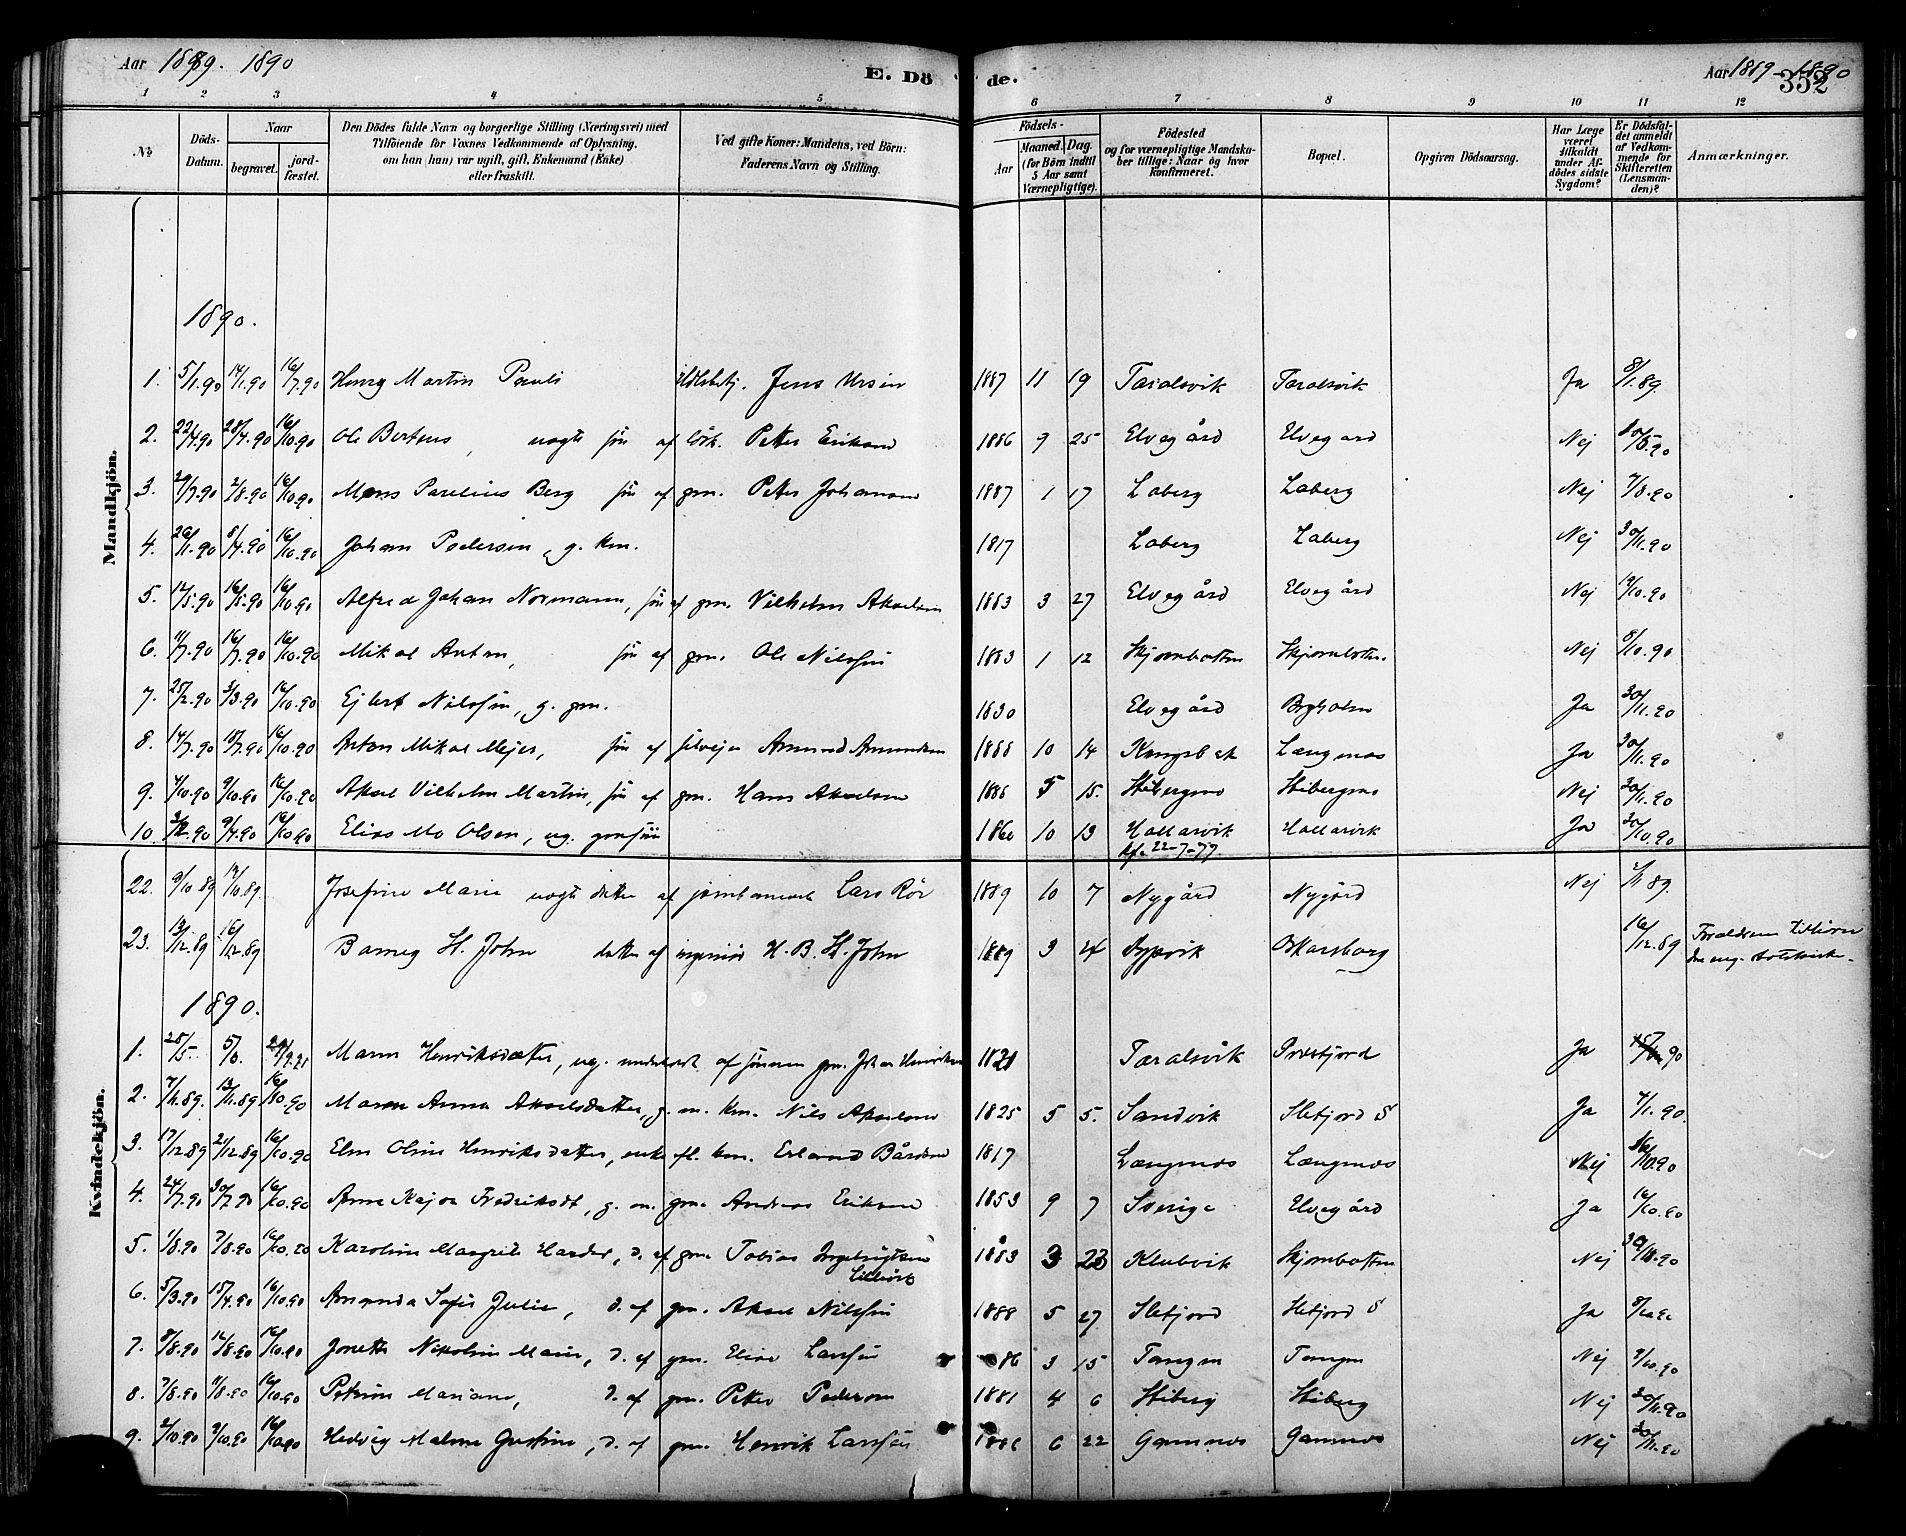 Aar 1889. 1890
E. Dö de.
Aar 1889-1890
352
1 2 3 4 5 6 7 8 9 10 11 12
No
Döds-Datum.
Naar
begravet.
jord-fæstet.
Den Dödes fulde Navn og borgerlige Stilling (Næringsvei) med
Tilföiende for Voxnes Vedkommende af Oplysning,
om han (hun) var ugift, gift, Enkemand (Enke)
eller fraskilt.
Ved gifte Koner: Mandens, ved Börn:
Faderens Navn og Stilling.
Födsels-
Aar
Maaned. Dag.
(for Börn indtil
5 Aar samt
Værnepligtige).
Födested
og for værnepligtige Mandska-
ber tillige: Naar og hvor
konfirmeret.
Bopæl.
Opgiven Dödsaarsag.
Har Læge
været
tilkaldt
under Af-
dödes sidste
Sygdom?
Er Dödsfal-
det anmeldt
af Vedkom-
mende for
Skifteretten
(Lensman-
den)?
Anmærkninger.
Mandkjön.
1890.
1. 5/1.90 14/1.90 16/7.90 Henry Martin Pauli Jens Ursin 1887 11 19 Taralsvik Taralsvik Ja 8/1.89.
2. 22/4.90 28/4.90 16/10.90 Ole Berteus, uægte søn af Peter Eriksen 1886 9 25 Elvegård Elvegård Nej
3. 29/7.90 2/8.90 16/10.90 Mons Parelius Berg søn af gm. Peter Johansen 1887 1 17 Laberg Laberg Nej 7/8.90
4. 26/11.90 8/4.90 16/10.90 Johan Pedersen, g. km. 1817 Laberg Laberg Nej 30/11.90
5. 12/5.90 16/5.90 16/10.90 Alfred Johan Normann, søn af gm. Vilhelm Akselsen 1883 3 27 Elvegård Elvegård Nej 19/10.90
6. 11/7.90 16/7.90 16/10.90 Mikal Anton, søn af gm. Ole Nilssen 1883 1 12 Skjombotten Skjombotten Nej 8/10.90
7. 25/2.90 3/3.90 16/10.90 Ejlert Nilssen, g. gm. 1830 Elvegård Ja 30/11.90
8. 14/7.90 18/7.90 16/10.90 Anton Mikal Mejer, søn af Amund Amundsen 1888 10 14 Kongsbak Længenes Ja 30/11.90
9. 4/10.90 9/10.90 16/10.90 Aksel Vilhelm Martin, søn af gm. Hans Akselsen 1886 5 15. Stibergnes Stibergnes Nej 30/11.90
10. 9/4.90 16/10.90 Elias Mo Olsen, ug. gmsøn 1860 10 13 Hallarvik Hallarvik Ja 30/10.90
kf. 22-7-77.
Kvindekjön.
22. 9/10 89 14/10.89. Josefine Marie uægte datter af Lars Rör 1889 10 7 Nygård Nygård Nej
23. 13/12.89 16/12.89 Barneg St. John datter af ingeniør H. B. St. John 1889 3 24 Oskarsborg 16/12.89 Forældrene tilhører
den eng.
1890.
1. 28/5. Maren Henriksdatter, ug. underholdt af sønnen gm. Johan Henriksen 1821 Taralsvik Præstjord Ja
2. 7/11.89. 13/11.89 16/10.90 Maren Anna Akselsdatter, g. m. km. Nils Akselsen 1825 5 5. Sandvik Slefjord S Ja 4/1.90.
3. 17/12.89 21/12.89 16/10.90 Elen Oline Henriksdatter, enke fl. km. Erland Bårdsen 1817 Længenes Længenes Nej 16/10.90
4. 24/7.90 30/7.90 16/10.90 Anna Kajsa Fredriksdt, g. m. gm. Andreas Eriksen 1853 9 7 Sverige Elvegård Ja 16/10.90
5. 1/8.90 7/8.90 16/10.90 Karoline Margrete Harder, d. af gm. Tobias Ingebrigtsen 1883 3 23 Klubvik Skjombotten Nej 30/11.90
6. 5/3.90 15/4.90 16/10.90 Amanda Sofie Julie, d. af gm. Aksel Nilssen 1888 5 27 Slefjord Slefjord S Ja
7. 8/8.90 16/8.90 16/10.90 Jonette Nikoline Marie, d. af gm. Elias Larssen 86 3 15 Tangen Tangen Nej 9/10.90
8. 7/8.90 11/8.90 16/10.90 Petrine Mariane, d. af gm. Peter Pedersen 1881 4 6 Stiberg Stiberg Nej 30/11.90
9. 2/10.90 9/10.90 16/10.90 Hedvig Malene Justine, d. af gm. Henrik Larssen 1886 6 22 Gamnes Gamnes Nej 30/11.90